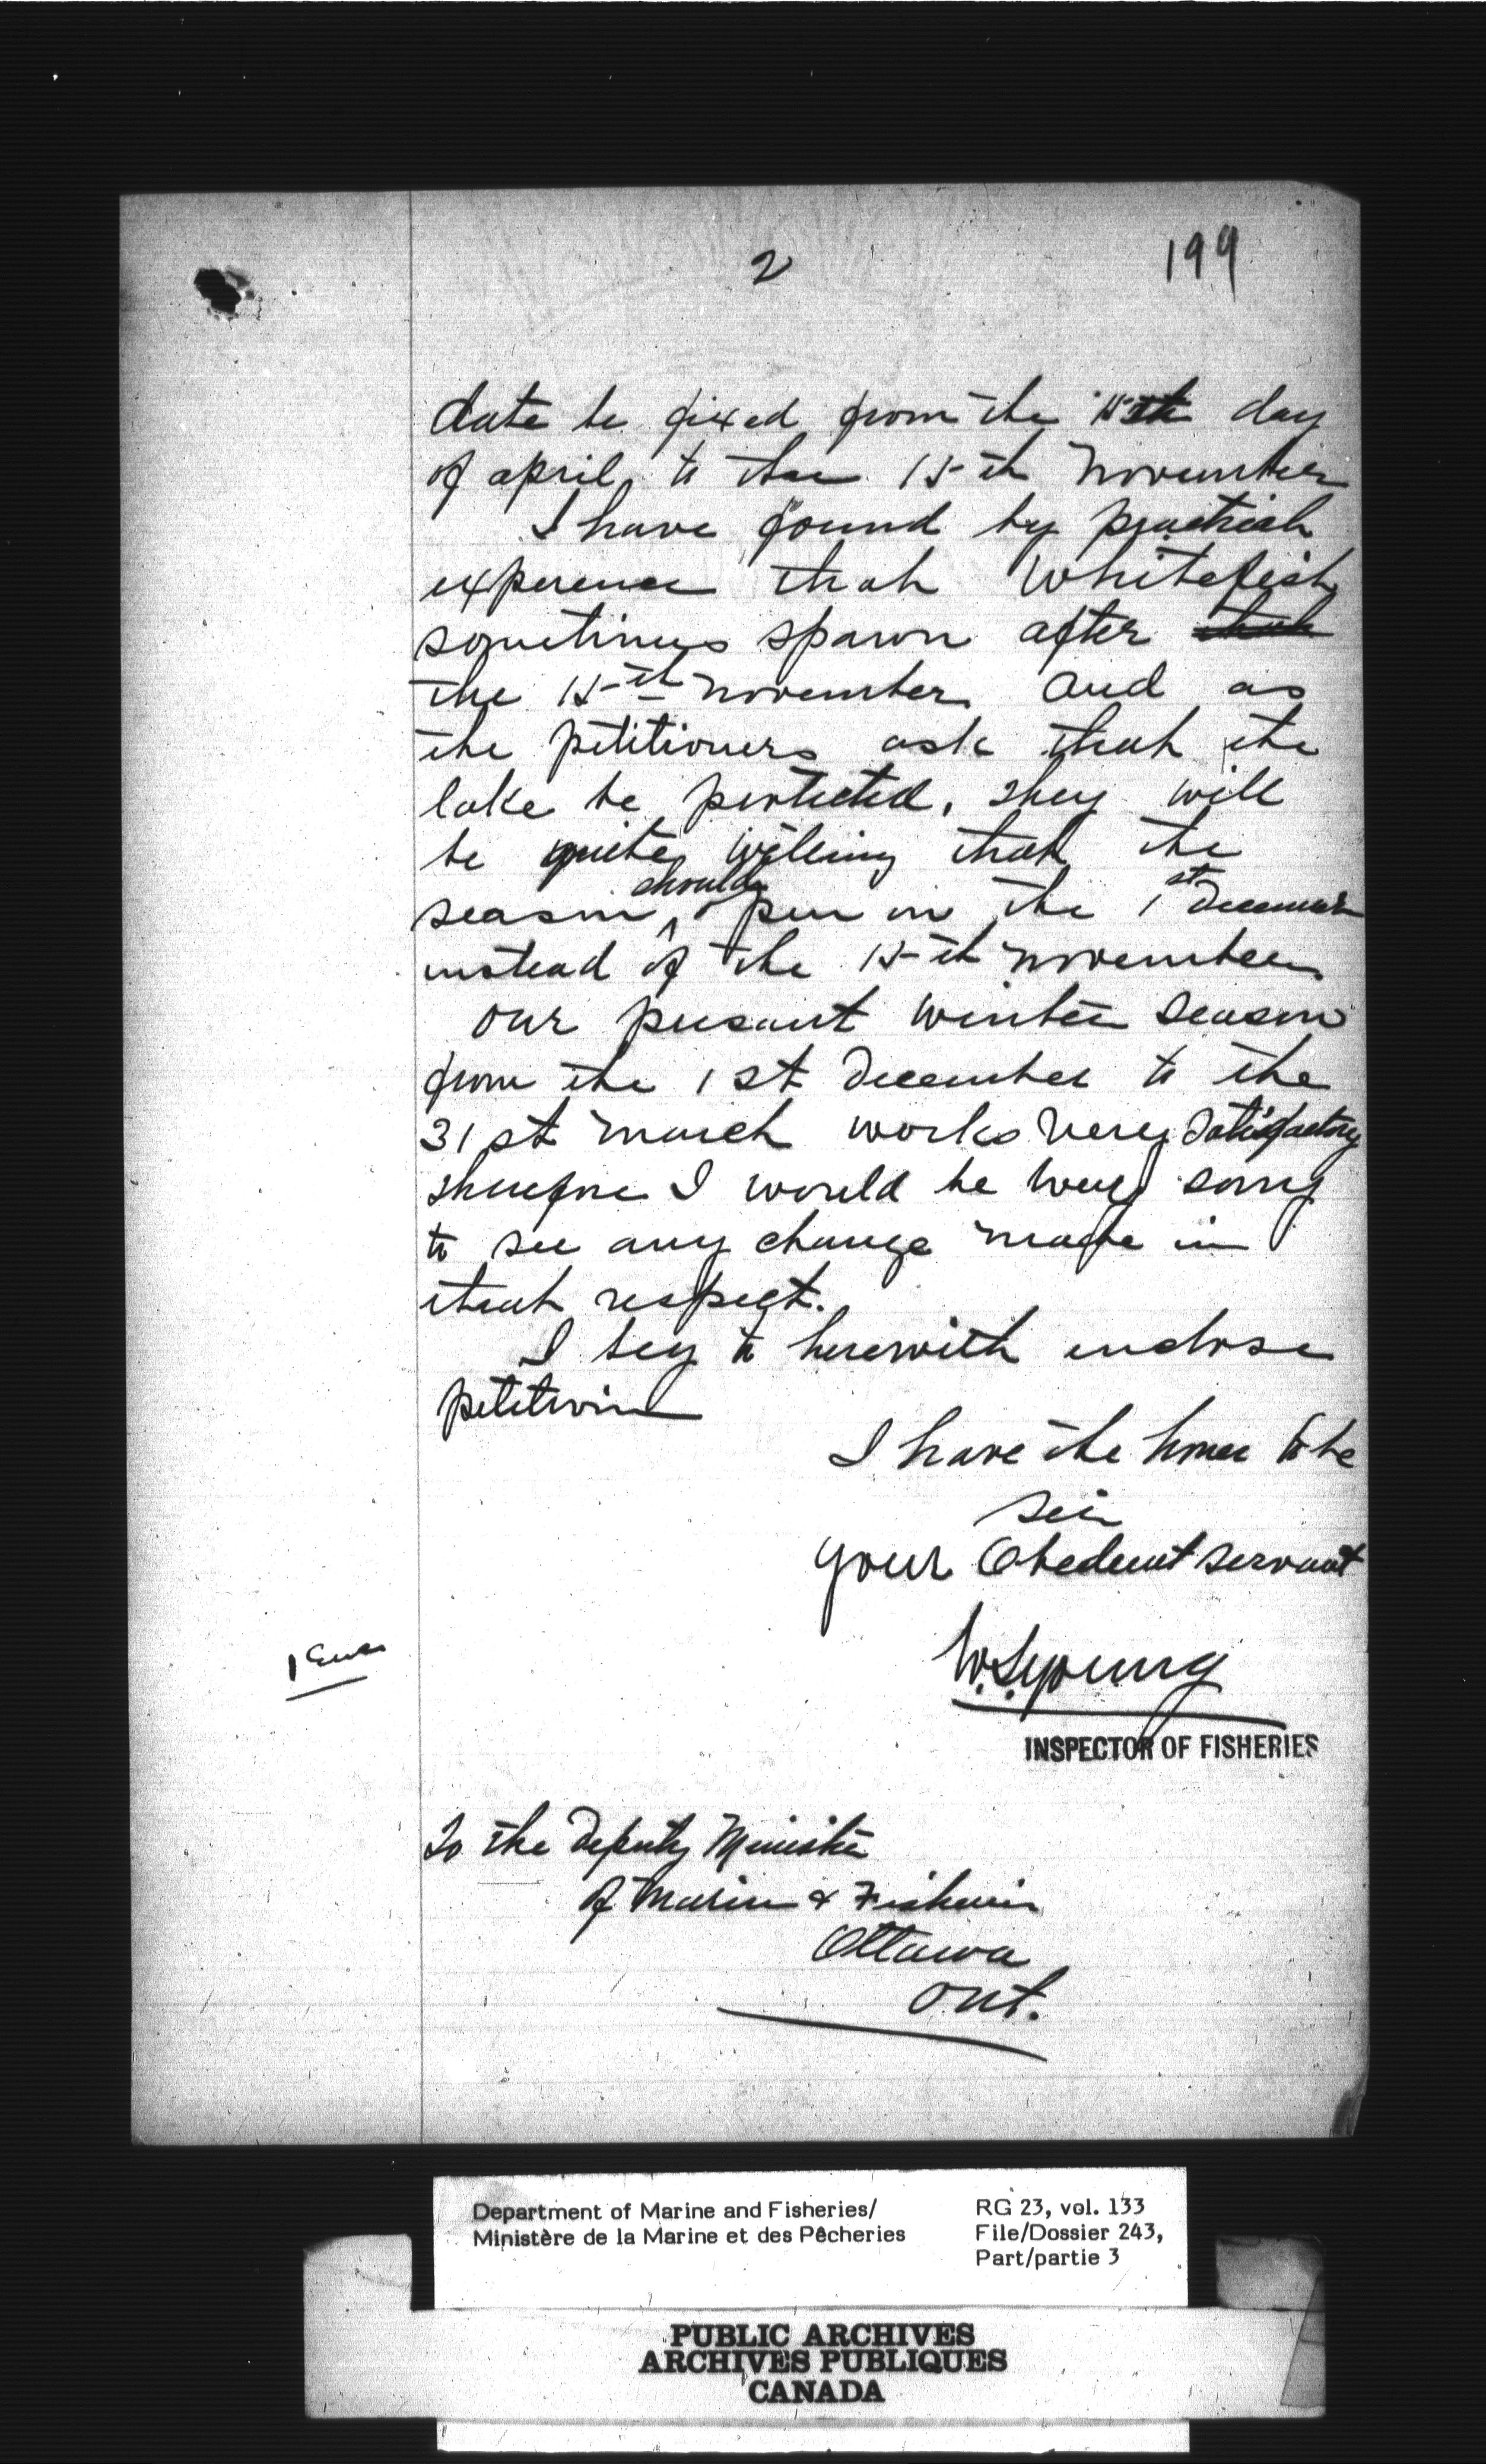 2
199
date be fixed from the 15th day
of april, to the 15th November
I have found by practical
experence that Whitefish
sometimes spawn after that
the 15th November and as
the petitioners ask that the
lake be protected, they will
be quite willing that the
season should open on the 1st December
instead of the 15th November
Our present winter season
from the 1st December to the
31st March works very satisfactory
therefore I would be very sorry
to see any change made in
that respect.
I beg to herewith enclose
petition
I have the honor to be
Sir
Your Obedient servant
1 Enc
W.S. Young
INSPECTOR OF FISHERIES
To the Deputy Minister
of Marine & Fisheries
Ottawa
Ont.
Department of Marine and Fisheries/ RG 23, vol. 133
Ministère de la Marine et des Pêcheries File/Dossier 243,
Part/partie 3
PUBLIC ARCHIVES
ARCHIVES PUBLIQUES
CANADA